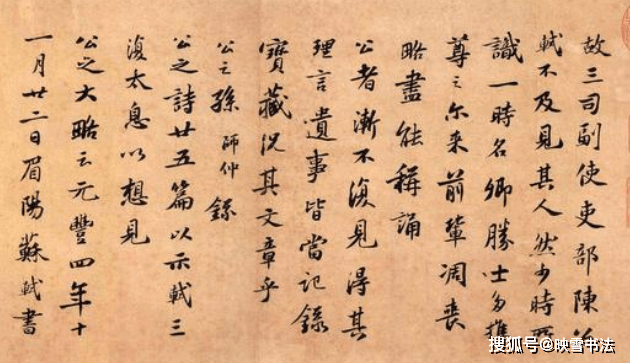 故三司副使吏部陳公
軾不及見其人然少時所
識一時名卿勝士多推
尊之尔来前輩凋喪
略盡能稱誦
公者漸不復見得其
理言遺事皆當記錄
寶藏況其文章乎
公之孫師仲錄
公之詩廿五篇以示軾三
復太息以想見
公之大略云元豐四年十
一月廿二日眉陽蘇軾書
搜狐号@映雪书法